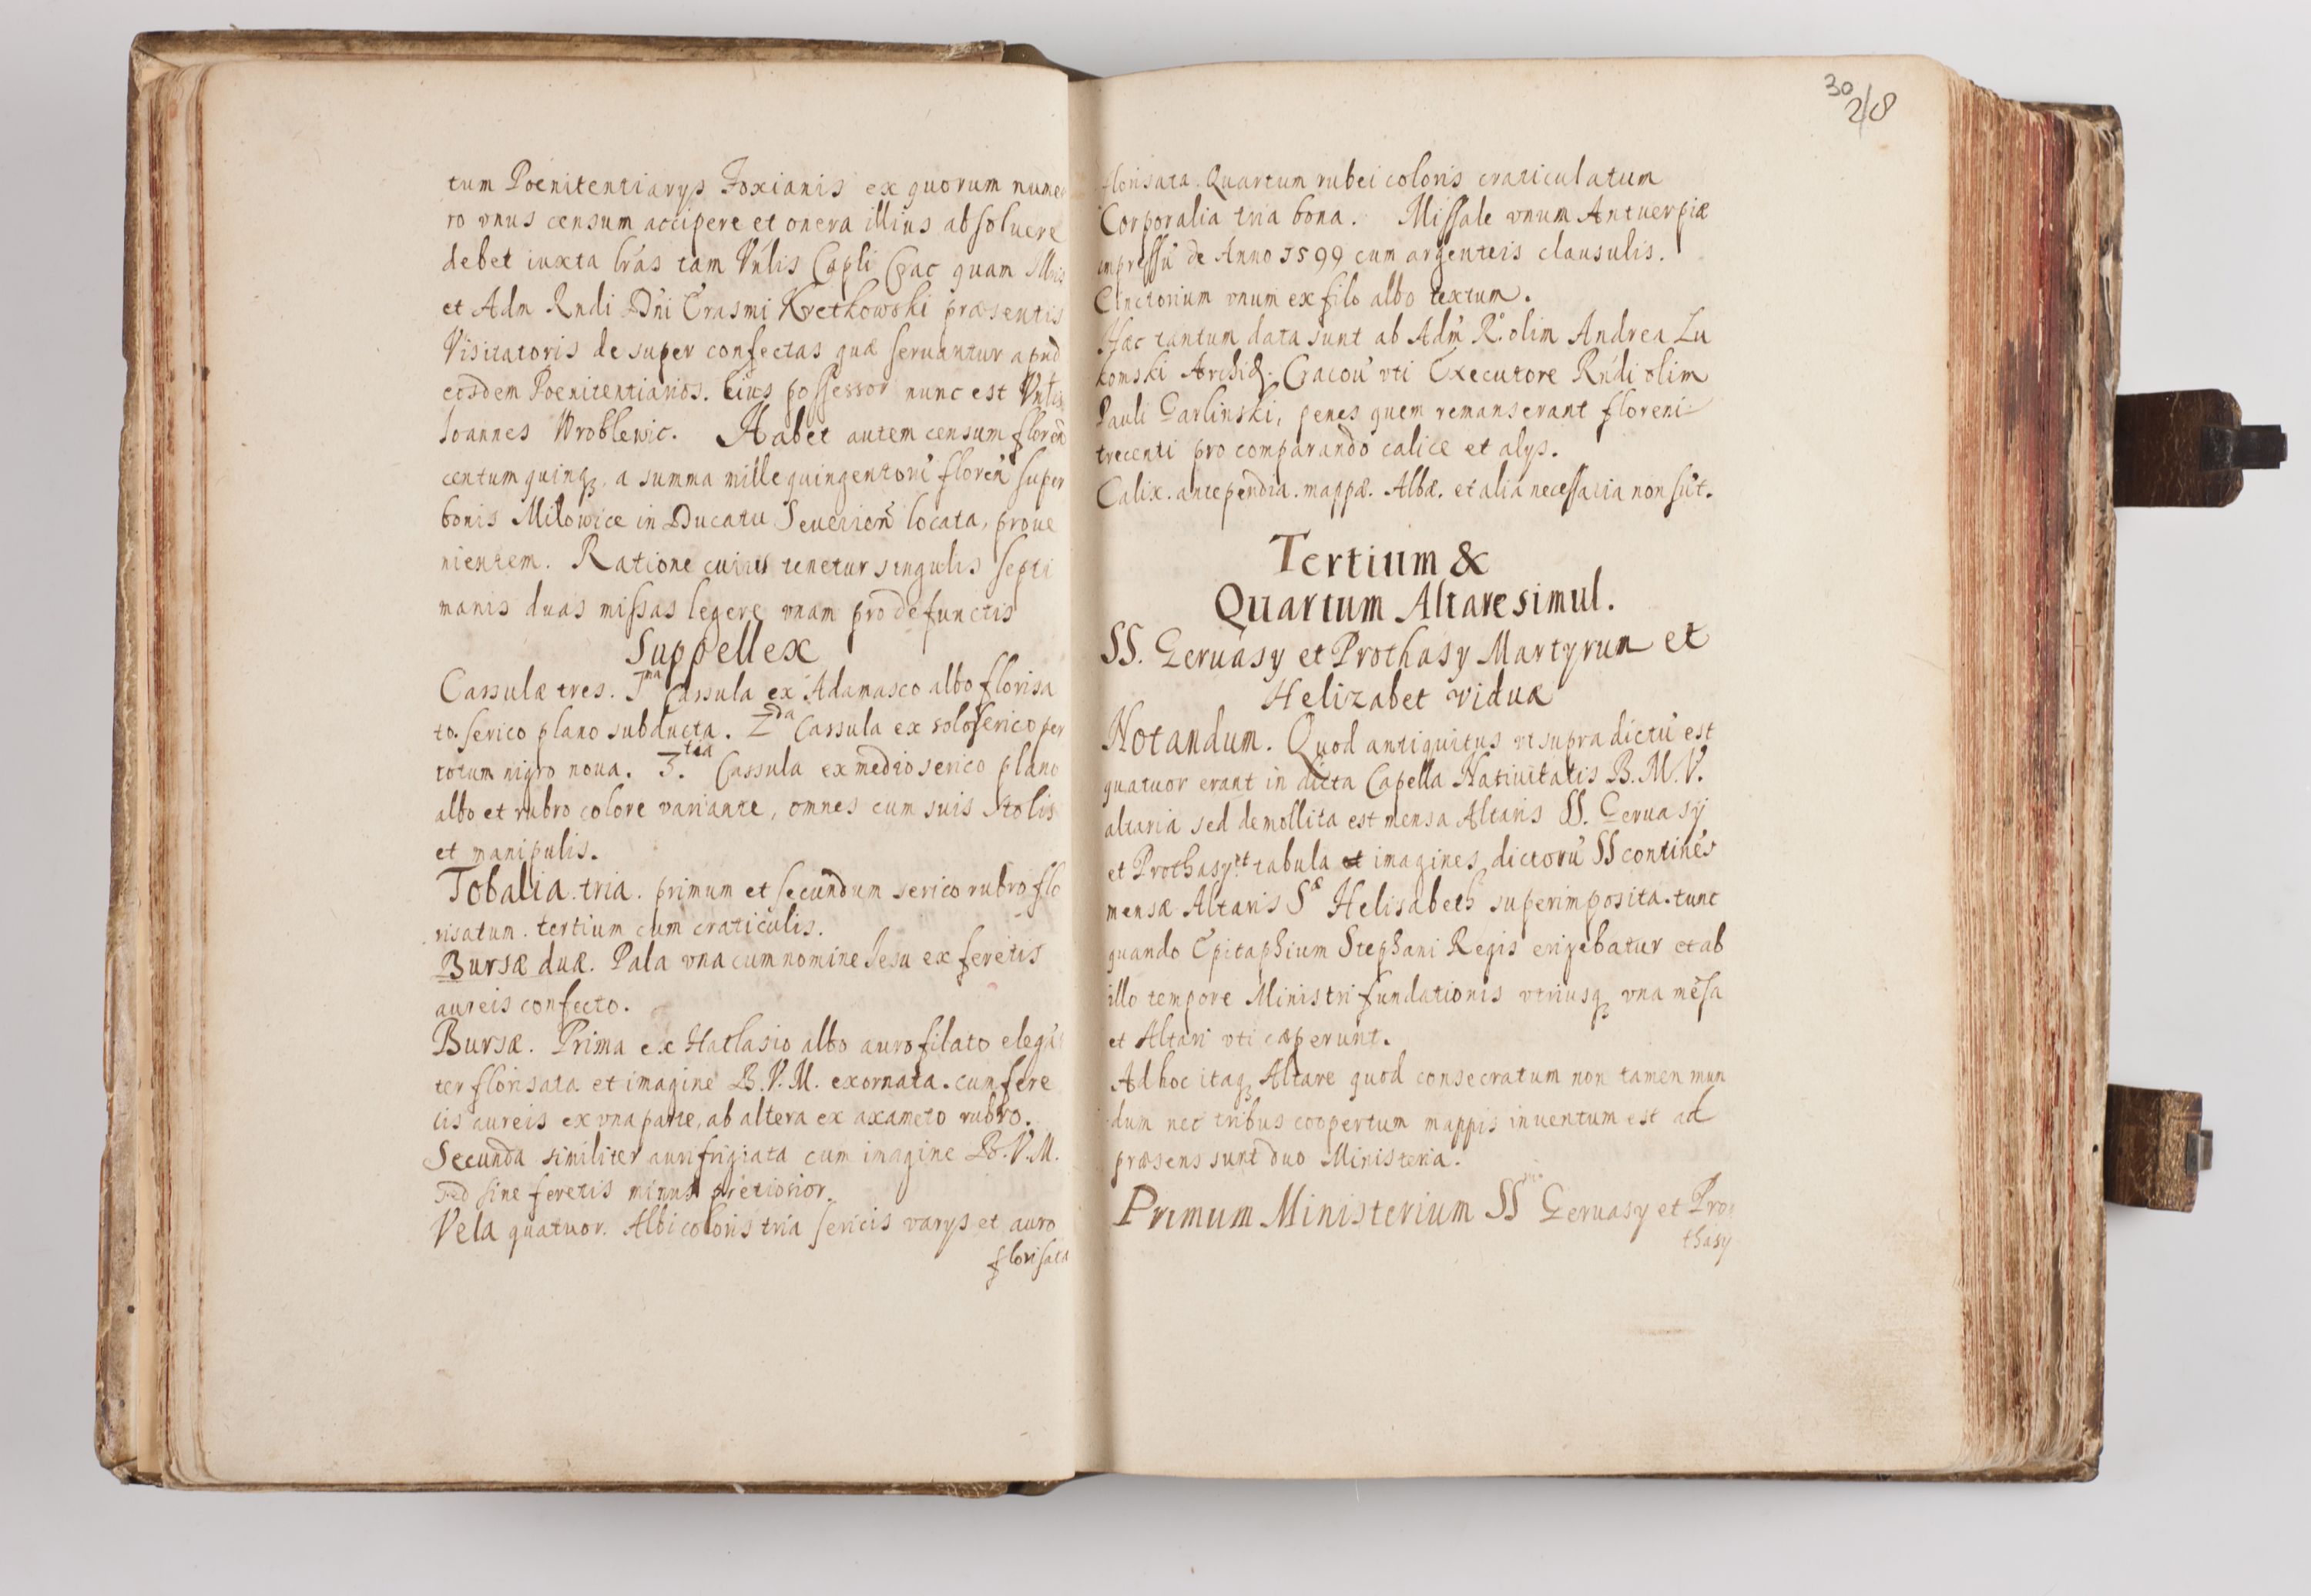 tum Poenitentiarys Foxianis ex quorum nume
ro vnus censum accipere et onera illius absoluere
debet iuxta lras tam Vnlis Capli Crac quam Illris
et Adm Rndi Dni Erasmi Kretkowski præsentis
Visitatoris desuper confectas quæ seruantur apud
eosdem Poenitentiarios. Eius possessor nunc est Vnlis
Ioannes Wroblewic. Habet autem censum floren
centum quinq, a summa mille quingentoru floren super
bonis Milowice in Ducatu Seuerien locata, proue
nientem. Ratione cuius tenetur singulis septi
manis duas missas legere vnam pro defunctis
Suppellex
Cassulæ tres. 1ma Cassula ex Adamasco albo florisa
to. serico plano subducta. 2da Cassula ex soloserico per
totum nigro noua. 3.tia Cassula ex medio serico plano
albo et rubro colore variante, omnes cum suis Stolis
et manipulis.
Tobalia tria. primum et secundum serico rubro flo
risatum. tertium cum craticulis.
Bursæ duæ. Pala vna cum nomine Iesu ex feretis
aureis confecto.
Bursæ. Prima ex Hatlasio albo auro filato elegan
ter florisata et imagine B.V.M. exornata. cum fere
tis aureis ex vna parte, ab altera ex axameto rubro.
Secunda similiter aurifrigiata cum imagine B.V.M.
sed sine feretis minus pretiosior.
Vela quatuor. Albi coloris tria sericis varys et auro
florisata
30
218
florisata. Quartum rubei coloris craticulatum
Corporalia tria bona. Missale vnum Antuerpiæ
impressu de Anno 1599 cum argenteis clausulis.
Cinctorium vnum ex filo albo textum.
Hæc tantum data sunt ab Adm R. olim Andrea Lu
komski Archid. Cracou vti Executore Rndi olim
Pauli Garlinski, penes quem remanserant floreni
trecenti pro comparando calice et alys.
Calix. antependia. mappæ. Albæ. et alia necessaria non sut.
Tertium &
Quartum Altare simul.
SS. Geruasy et Prothasy Martyrum et
Helizabet viduæ
Notandum. Quod antiquitus vt supra dictu est
quatuor erant in dicta Capella Natiuitatis B.M.V.
altaria sed demollita est mensa Altaris SS. Geruasy
et Prothasy et tabula imagines dictoru SS contines
mensæ Altaris Sæ Helisabeth superimposita. tunc
quando Epitaphium Stephani Regis erigebatur et ab
illo tempore Ministri fundationis vtriusq vna mesa
et Altari vti cæperunt.
Ad hoc itaq Altare quod consecratum non tamen mun
dum nec tribus coopertum mappis inuentum est ad
præsens sunt duo Ministeria.
Primum Ministerium SS Geruasy et Pro
thasy